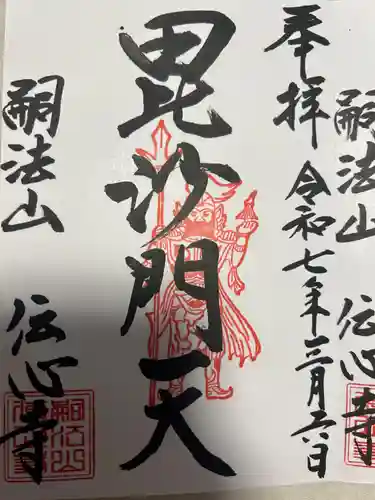 嗣法山 伝心寺
奉拝 令和七年三月六日
毘沙門天
嗣法山 伝心寺